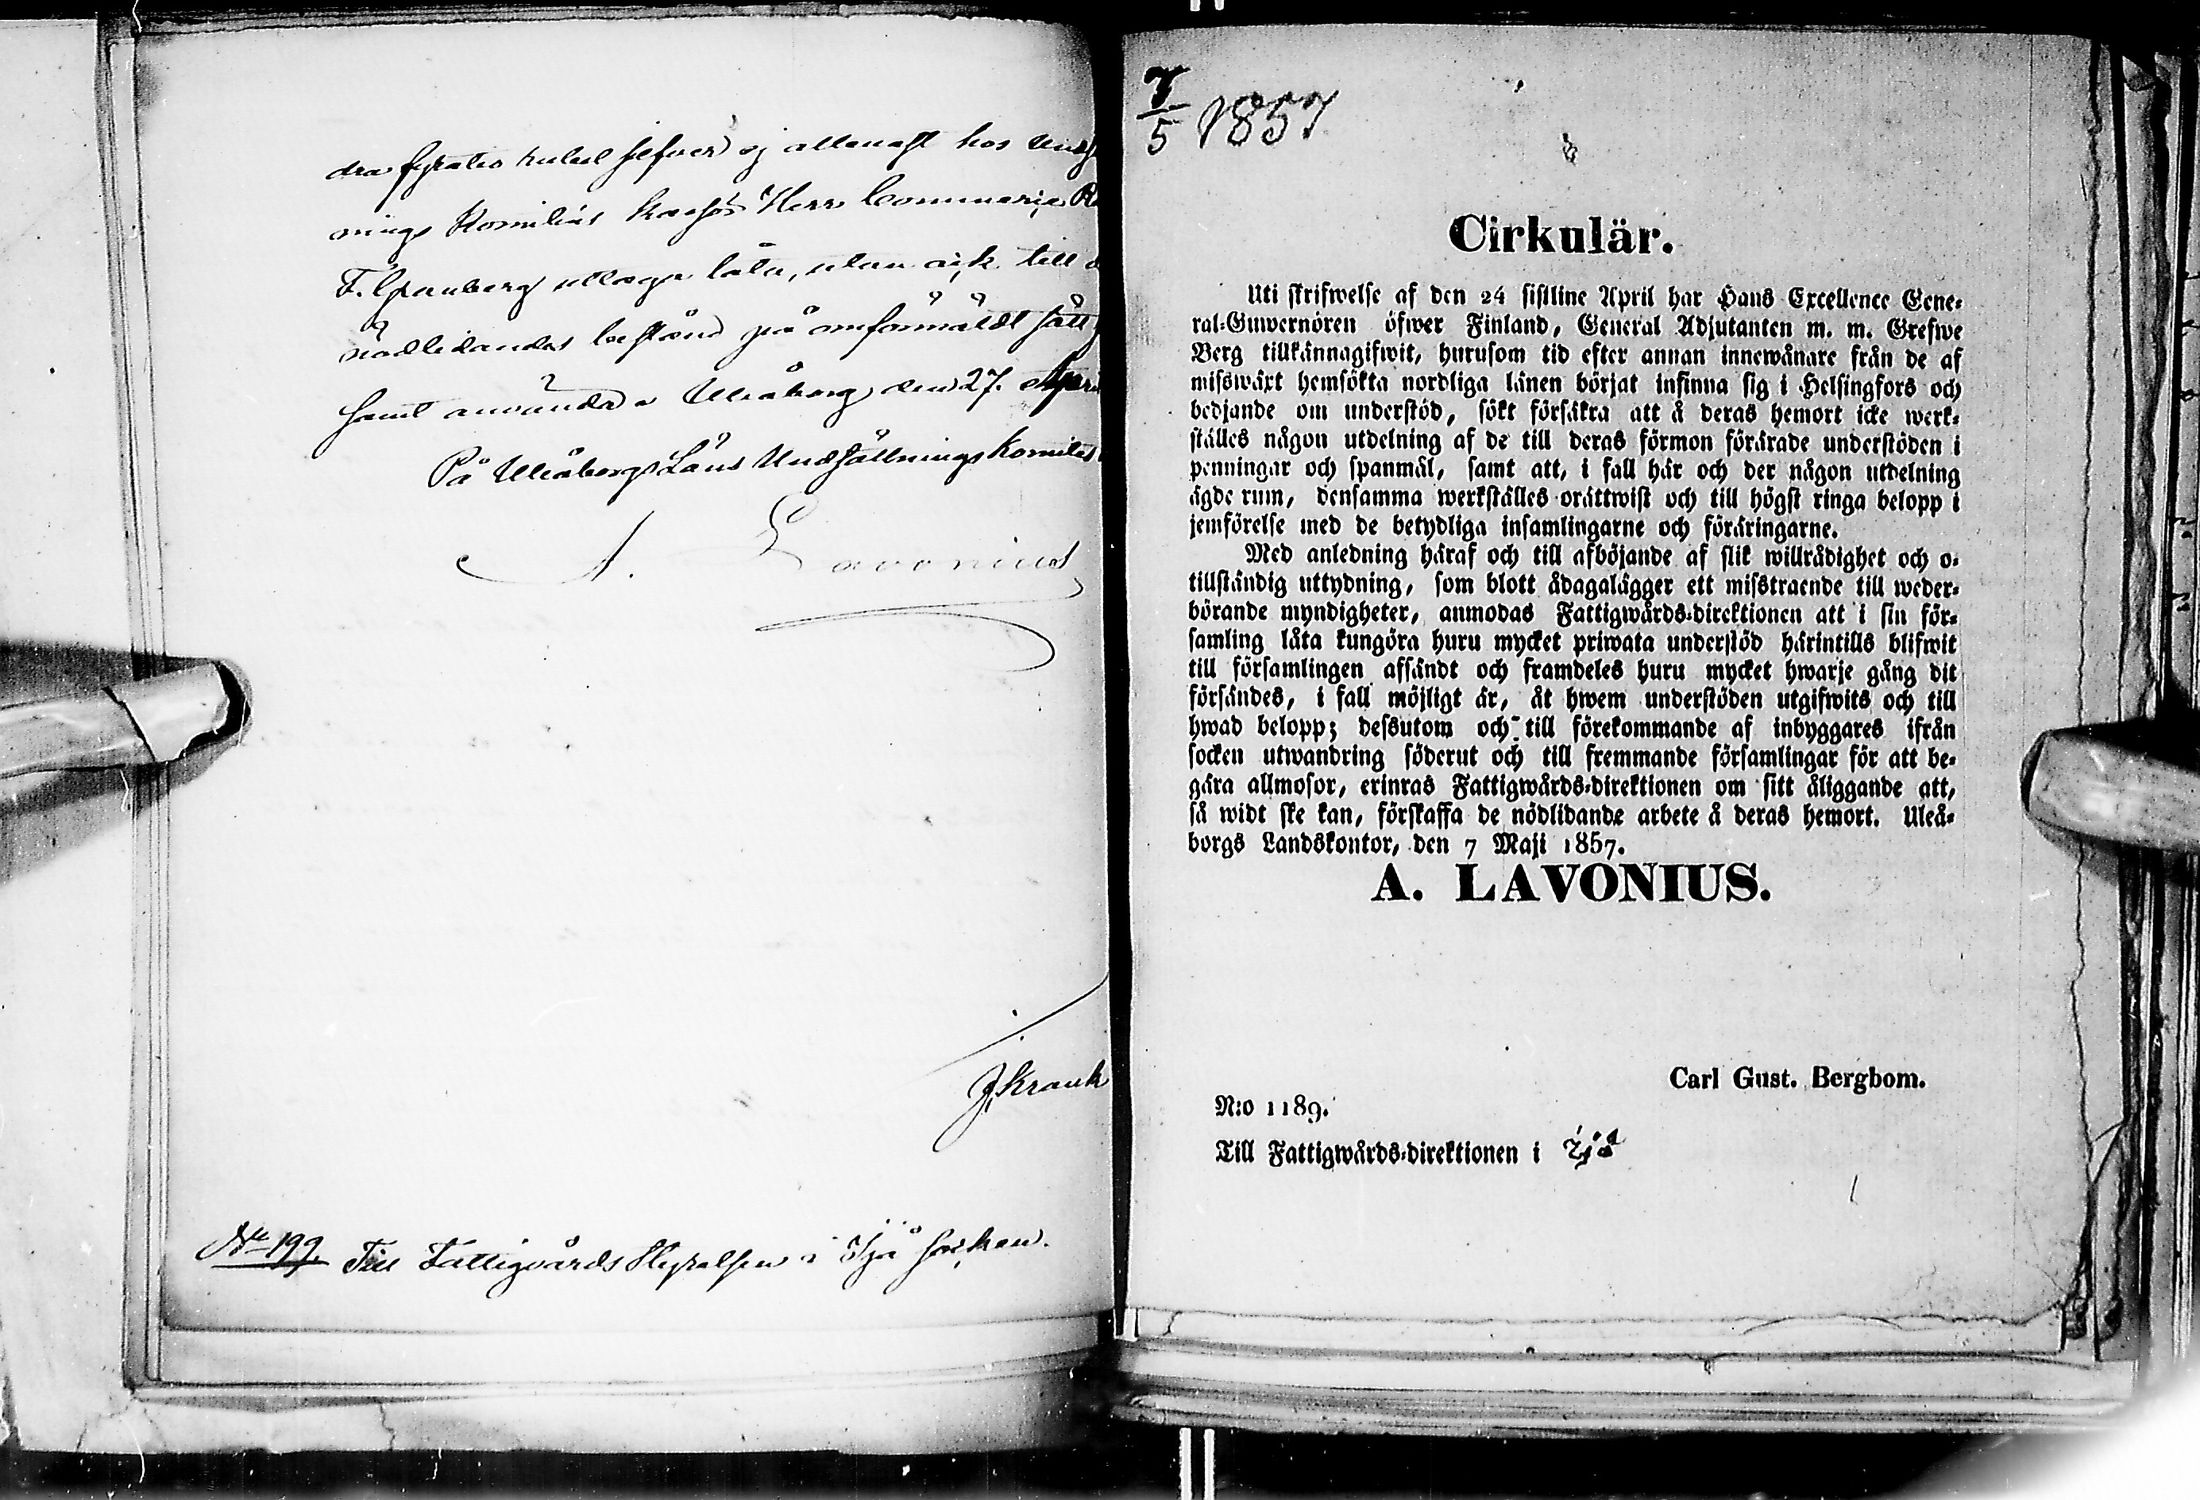 dra fyratio rubel silfver ej allenast hos Und
nings Komiténs kassör Herr Commerce R
F. Granberg uttaga låta, utan ock till
nödlidandes bistånd på omförmäldt sätt
samt använda. Uleåborg den 27. April
På Uleåborgs Läns Undsättnings Komités
A. Lavonius
J. Krank
No 199. Till Fattigvårds Styrelsen i Ijo socken.
7/5 1857
Cirkulär.
Uti skrifwelse af den 24 sistline April har Hans Excellence Gene-
ral-Guwernören öfwer Finland, General Adjutanten m. m. Grefwe
Berg tillkännagifwit, hurusom tid efter annan innewånare från de af
misswäxt hemsökta nordliga länen börjat infinna sig i Helsingfors och
bedjande om understöd, sökt försäkra att å deras hemort icke werk-
ställes någon utdelning af de till deras förmon förärade understöden i
penningar och spanmål, samt att, i fall här och der någon utdelning
ägde rum, densamma werkställes orättwist och till högst ringa belopp i
jemförelse med de betydliga insamlingarne och föräringarne.
Med anledning häraf och till afböjande af slik willrådighet och o-
tillständig uttydning, som blott ådagalägger ett misstroende till weder-
börande myndigheter, anmodas Fattigwårds-direktionen att i sin för-
samling låta kungöra huru mycket priwata understöd härintills blifwit
till församlingen afsändt och framdeles huru mycket hwarje gång dit
försändes, i fall möjligt är, åt hwem understöden utgifwits och till
hwad belopp; dessutom och till förekommande af inbyggares ifrån
socken utwandring söderut och till fremmande församlingar för att be-
gära allmosor, erinras Fattigwårds-direktionen om sitt åliggande att,
så widt ske kan, förskaffa de nödlidande arbete å deras hemort. Uleå-
borgs Landskontor, den 7 Maji 1857.
A. LAVONIUS.
Carl Gust. Bergbom.
N:o 1189.
Till Fattigwårds-direktionen i Ijo